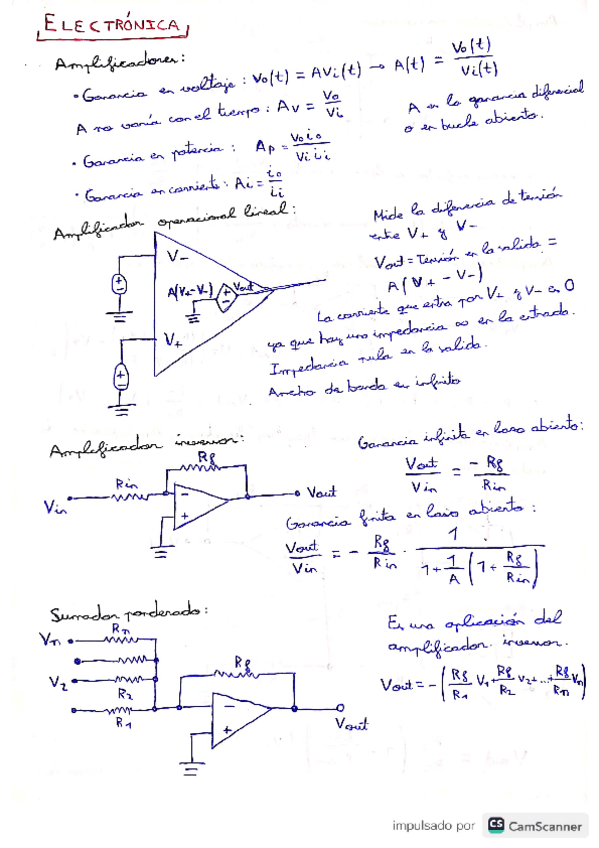 ELECTRÓNICA
Amplificadores:
• Ganancia en voltaje: Vo(t) = AVi(t) → A(t) = Vo(t) / Vi(t)
A no varía con el tiempo: Av = Vo / Vi
A es la ganancia diferencial
o en bucle abierto.
• Ganancia en potencia: Ap = Vo io / Vi ii
• Ganancia en corriente: Ai = io / ii
Amplificador operacional lineal:
Mide la diferencia de tensión
entre V+ y V-
Vout = Tensión en la salida =
A(V+ - V-)
V-
A(V+-V-)
Vout
V+
La corriente que entra por V+ y V- es 0
ya que hay una impedancia ∞ en la entrada.
Impedancia nula en la salida.
Ancho de banda es infinito
Amplificador inversor:
Ganancia infinita en lazo abierto:
Vout / Vin = -Rf / Rin
Rf
Rin
Vin
Vout
Ganancia finita en lazo abierto:
Vout / Vin = - Rf / Rin · 1 / 1+ 1/A (1+ Rf/Rin)
Sumador ponderado:
Es una aplicación del
amplificador inversor.
Vout = -(Rf/R1 V1 + Rf/R2 V2 + ... + Rf/Rn Vn)
Vn
Rn
V2
R2
R1
Rf
Vout
impulsado por CS CamScanner